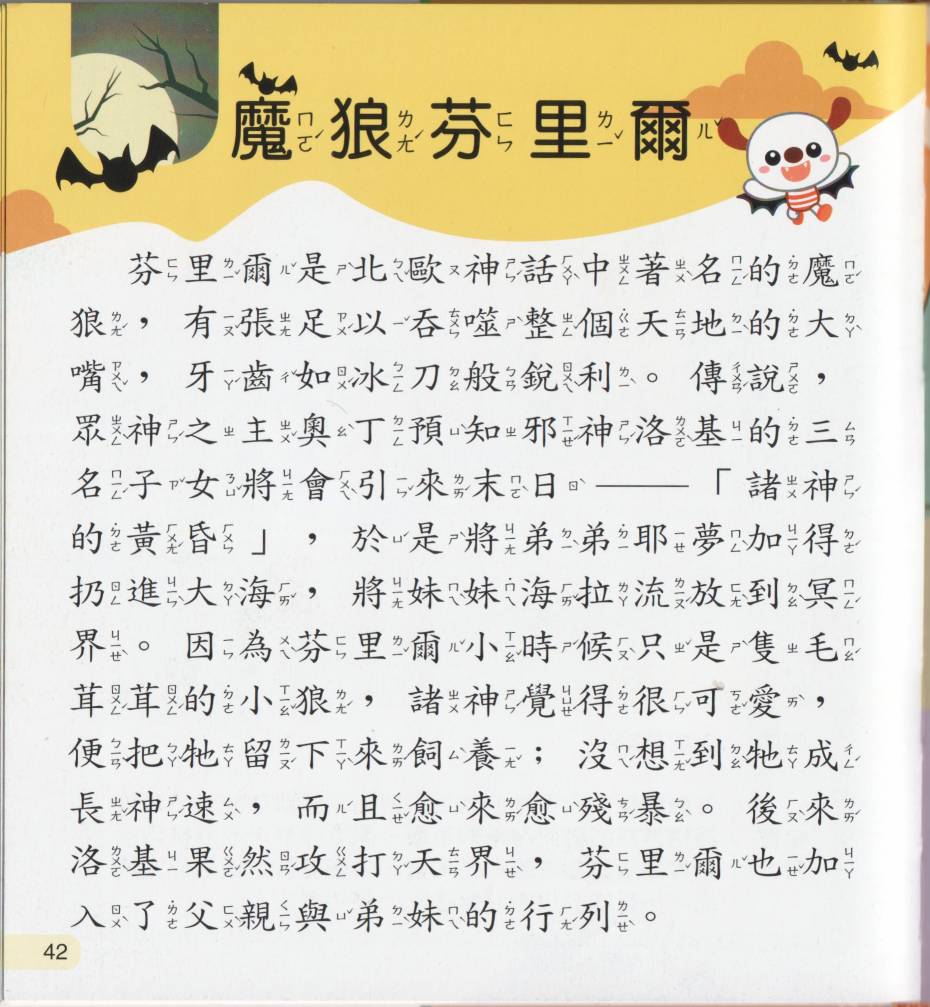 魔狼芬里爾
芬里爾是北歐神話中著名的魔
狼，有張足以吞噬整個天地的大
嘴，牙齒如冰刀般銳利。傳說，
眾神之主奧丁預知邪神洛基的三
名子女將會引來末日——「諸神
的黃昏」，於是將弟弟耶夢加得
扔進大海，將妹妹海拉流放到冥
界。因為芬里爾小時候只是隻毛
茸茸的小狼，諸神覺得很可愛，
便把牠留下來飼養；沒想到牠成
長神速，而且愈來愈殘暴。後來
洛基果然攻打天界，芬里爾也加
入了父親與弟妹的行列。
42